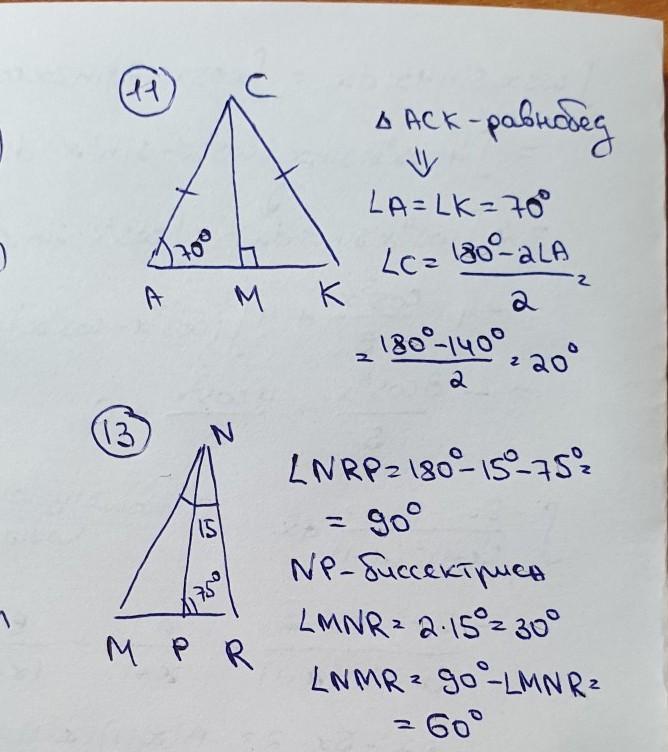 11
C
70°
A M K
Δ ACK - равнобед
⇓
∠A = ∠K = 70°
∠C = (180° - 2∠A)/2 =
= (180° - 140°)/2 = 20°
13
N
15
75°
M P R
∠NRP = 180° - 15° - 75° =
= 90°
NP - биссектриса
∠MNR = 2·15° = 30°
∠NMR = 90° - ∠MNR =
= 60°